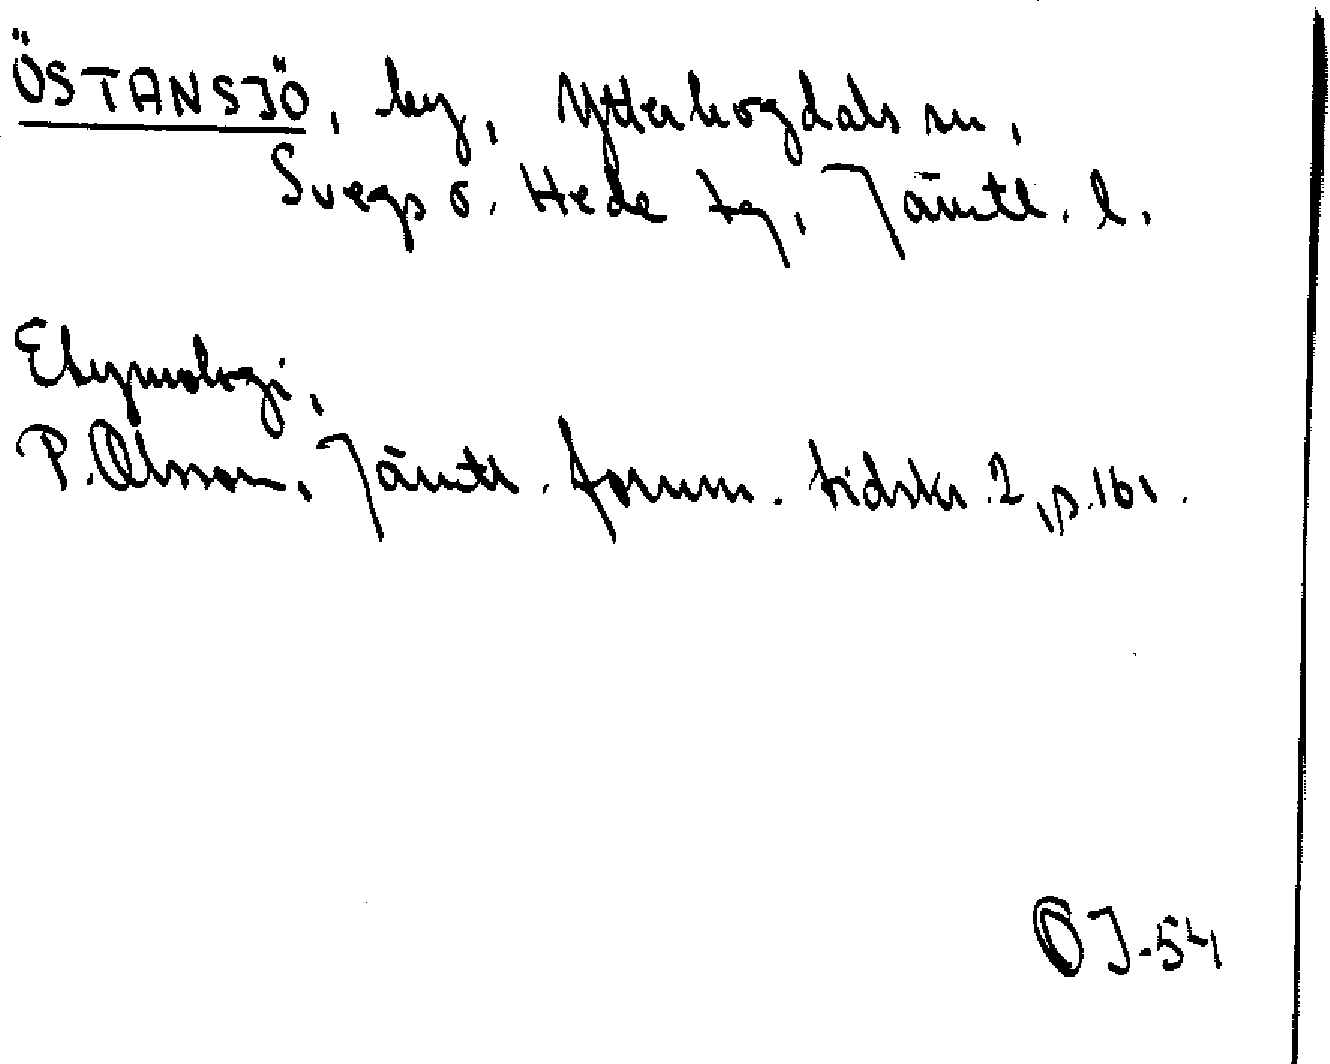 ÖSTANSJÖ, by, Ytterhogdals sn,
Svegs o. Hede tg, Jämtl. l.
Etymologi,
P. Olsson, Jämtl. fornm. tidskr. 2, p. 161.
OJ-54